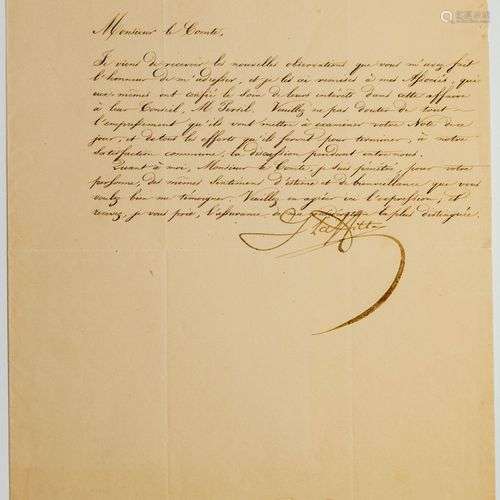 Monsieur le Comte,
Je viens de recevoir les nouvelles observations que vous m'avez fait
l'honneur de m'adresser, et je les ai remises à mes Associés, qui
eux mêmes ont confié le soin de leurs intérêts dans cette affaire
à leur Conseil, M. Persil. Veuillez ne pas douter de tout
l'empressement qu'ils vont mettre à examiner votre Note de ce
jour, et de tous les efforts qu'ils feront pour terminer, à notre
satisfaction commune, la discussion pendant entre nous.
Quant à moi, Monsieur le Comte, je suis pénétré, pour votre
personne, des mêmes sentimens d'estime et de bienveillance que vous
voulez bien me témoigner. Veuillez en agréer ici l'expression, et
recevez, je vous prie, l'assurance de ma la plus distinguée.
J Laffitte